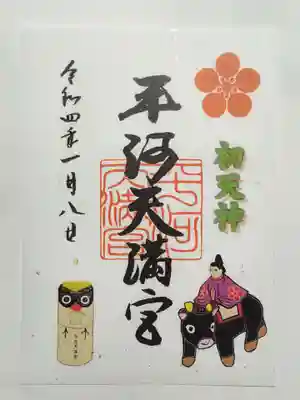 初天神
平河天満宮
令和四年一月八日